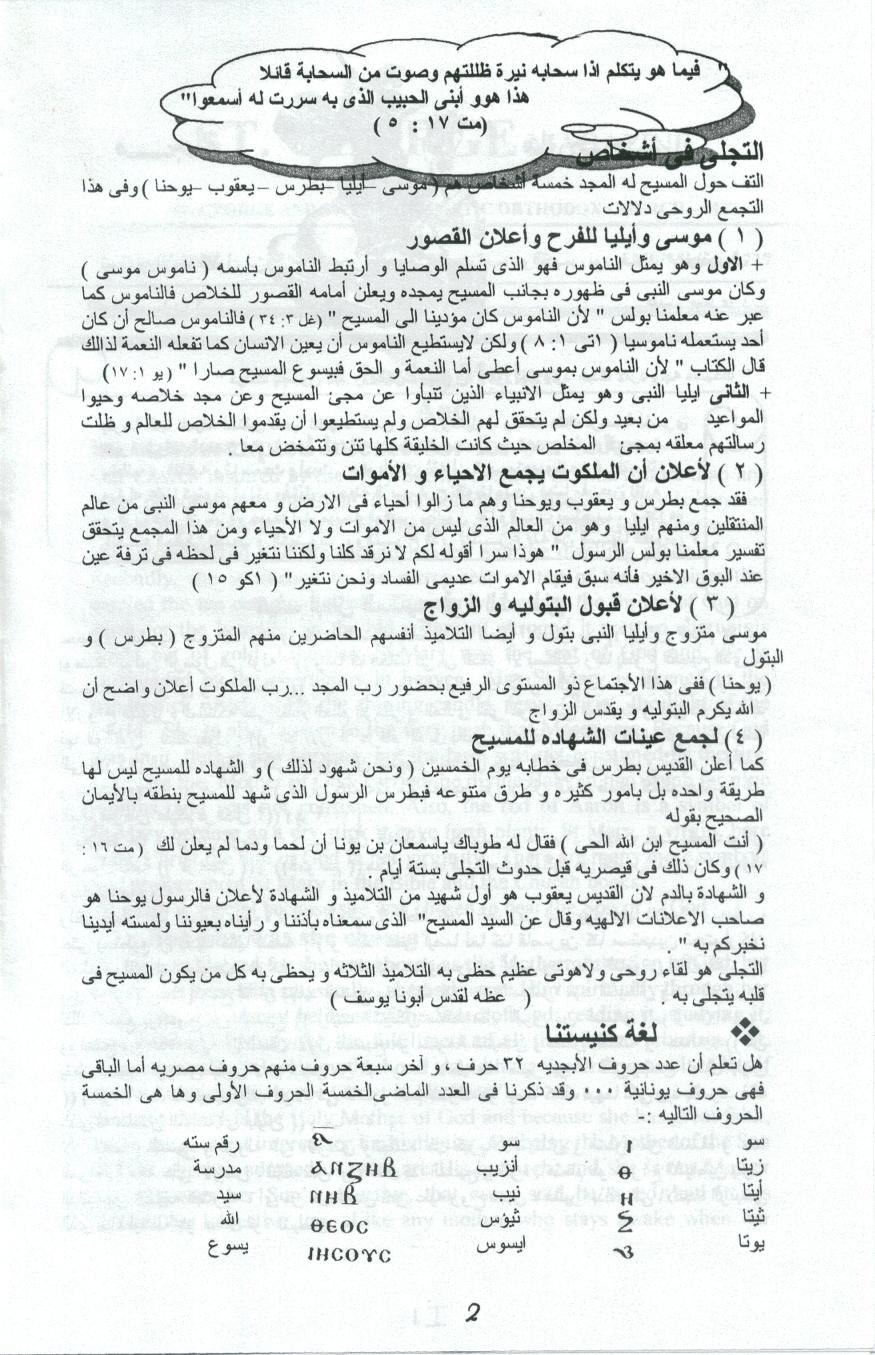 " فيما هو يتكلم اذا سحابه نيرة ظللتهم وصوت من السحابة قائلا
هذا هوو أبنى الحبيب الذى به سررت له أسمعوا"
(مت ١٧ : ٥ )
التجلى فى أشخاص
التف حول المسيح له المجد خمسة أشخاص هم ( موسى –أيليا –بطرس –يعقوب –يوحنا ) وفى هذا
التجمع الروحى دلالات
( ١ ) موسى وأيليا للفرح وأعلان القصور
+ الاول وهو يمثل الناموس فهو الذى تسلم الوصايا و أرتبط الناموس بأسمه ( ناموس موسى )
وكان موسى النبى فى ظهوره بجانب المسيح يمجده ويعلن أمامه القصور للخلاص فالناموس كما
عبر عنه معلمنا بولس " لأن الناموس كان مؤدبنا الى المسيح " (غل ٣: ٢٤ ) فالناموس صالح أن كان
أحد يستعمله ناموسيا ( ١تى ١: ٨ ) ولكن لايستطيع الناموس أن يعين الانسان كما تفعله النعمة لذالك
قال الكتاب " لأن الناموس بموسى أعطى أما النعمة و الحق فبيسوع المسيح صارا " ( يو ١: ١٧ )
+ الثانى ايليا النبى وهو يمثل الانبياء الذين تنبأوا عن مجئ المسيح وعن مجد خلاصه وحيوا
المواعيد من بعيد ولكن لم يتحقق لهم الخلاص ولم يستطيعوا أن يقدموا الخلاص للعالم و ظلت
رسالتهم معلقه بمجئ المخلص حيث كانت الخليقة كلها تئن وتتمخض معا .
( ٢ ) لأعلان أن الملكوت يجمع الاحياء و الأموات
فقد جمع بطرس و يعقوب ويوحنا وهم ما زالوا أحياء فى الارض و معهم موسى النبى من عالم
المنتقلين ومنهم ايليا وهو من العالم الذى ليس من الاموات ولا الأحياء ومن هذا المجمع يتحقق
تفسير معلمنا بولس الرسول " هوذا سرا أقوله لكم لا نرقد كلنا ولكننا نتغير فى لحظه فى ترفة عين
عند البوق الاخير فأنه سبق فيقام الاموات عديمى الفساد ونحن نتغير " ( ١كو ١٥ )
( ٣ ) لأعلان قبول البتوليه و الزواج
موسى متزوج وأيليا النبى بتول و أيضا التلاميذ أنفسهم الحاضرين منهم المتزوج ( بطرس ) و
البتول
( يوحنا ) ففى هذا الأجتماع ذو المستوى الرفيع بحضور رب المجد ...رب الملكوت أعلان واضح أن
الله يكرم البتوليه و يقدس الزواج
( ٤ ) لجمع عينات الشهاده للمسيح
كما أعلن القديس بطرس فى خطابه يوم الخمسين ( ونحن شهود لذلك ) و الشهاده للمسيح ليس لها
طريقة واحده بل بامور كثيره و طرق متنوعه فبطرس الرسول الذى شهد للمسيح بنطقه بالأيمان
الصحيح بقوله
( أنت المسيح ابن الله الحى ) فقال له طوباك ياسمعان بن يونا أن لحما ودما لم يعلن لك ( مت ١٦ :
١٧ ) وكان ذلك فى قيصريه قبل حدوث التجلى بستة أيام .
و الشهادة بالدم لان القديس يعقوب هو أول شهيد من التلاميذ و الشهادة لأعلان فالرسول يوحنا هو
صاحب الاعلانات الالهيه وقال عن السيد المسيح" الذى سمعناه بأذننا و رأيناه بعيوننا ولمسته أيدينا
نخبركم به "
التجلى هو لقاء روحى ولاهوتى عظيم حظى به التلاميذ الثلاثه و يحظى به كل من يكون المسيح فى
قلبه يتجلى به . ( عظه لقدس ابونا يوسف )
❖ لغة كنيستنا
هل تعلم أن عدد حروف الأبجديه ٣٢ حرف ، و آخر سبعة حروف منهم حروف مصريه أما الباقى
فهى حروف يونانية ٠٠٠ وقد ذكرنا فى العدد الماضى الخمسة الحروف الأولى وها هى الخمسة
الحروف التاليه :-
سو ⲓ سو ⲋ رقم سته
زيتا ⲑ أنزيب ⲁⲛⲍⲏⲃ مدرسة
أيتا ⲏ نيب ⲛⲏⲃ سيد
ثيتا ⲍ ثيؤس ⲑⲉⲟⲥ الله
يوتا ⲋ ايسوس ⲓⲏⲥⲟⲩⲥ يسوع
2